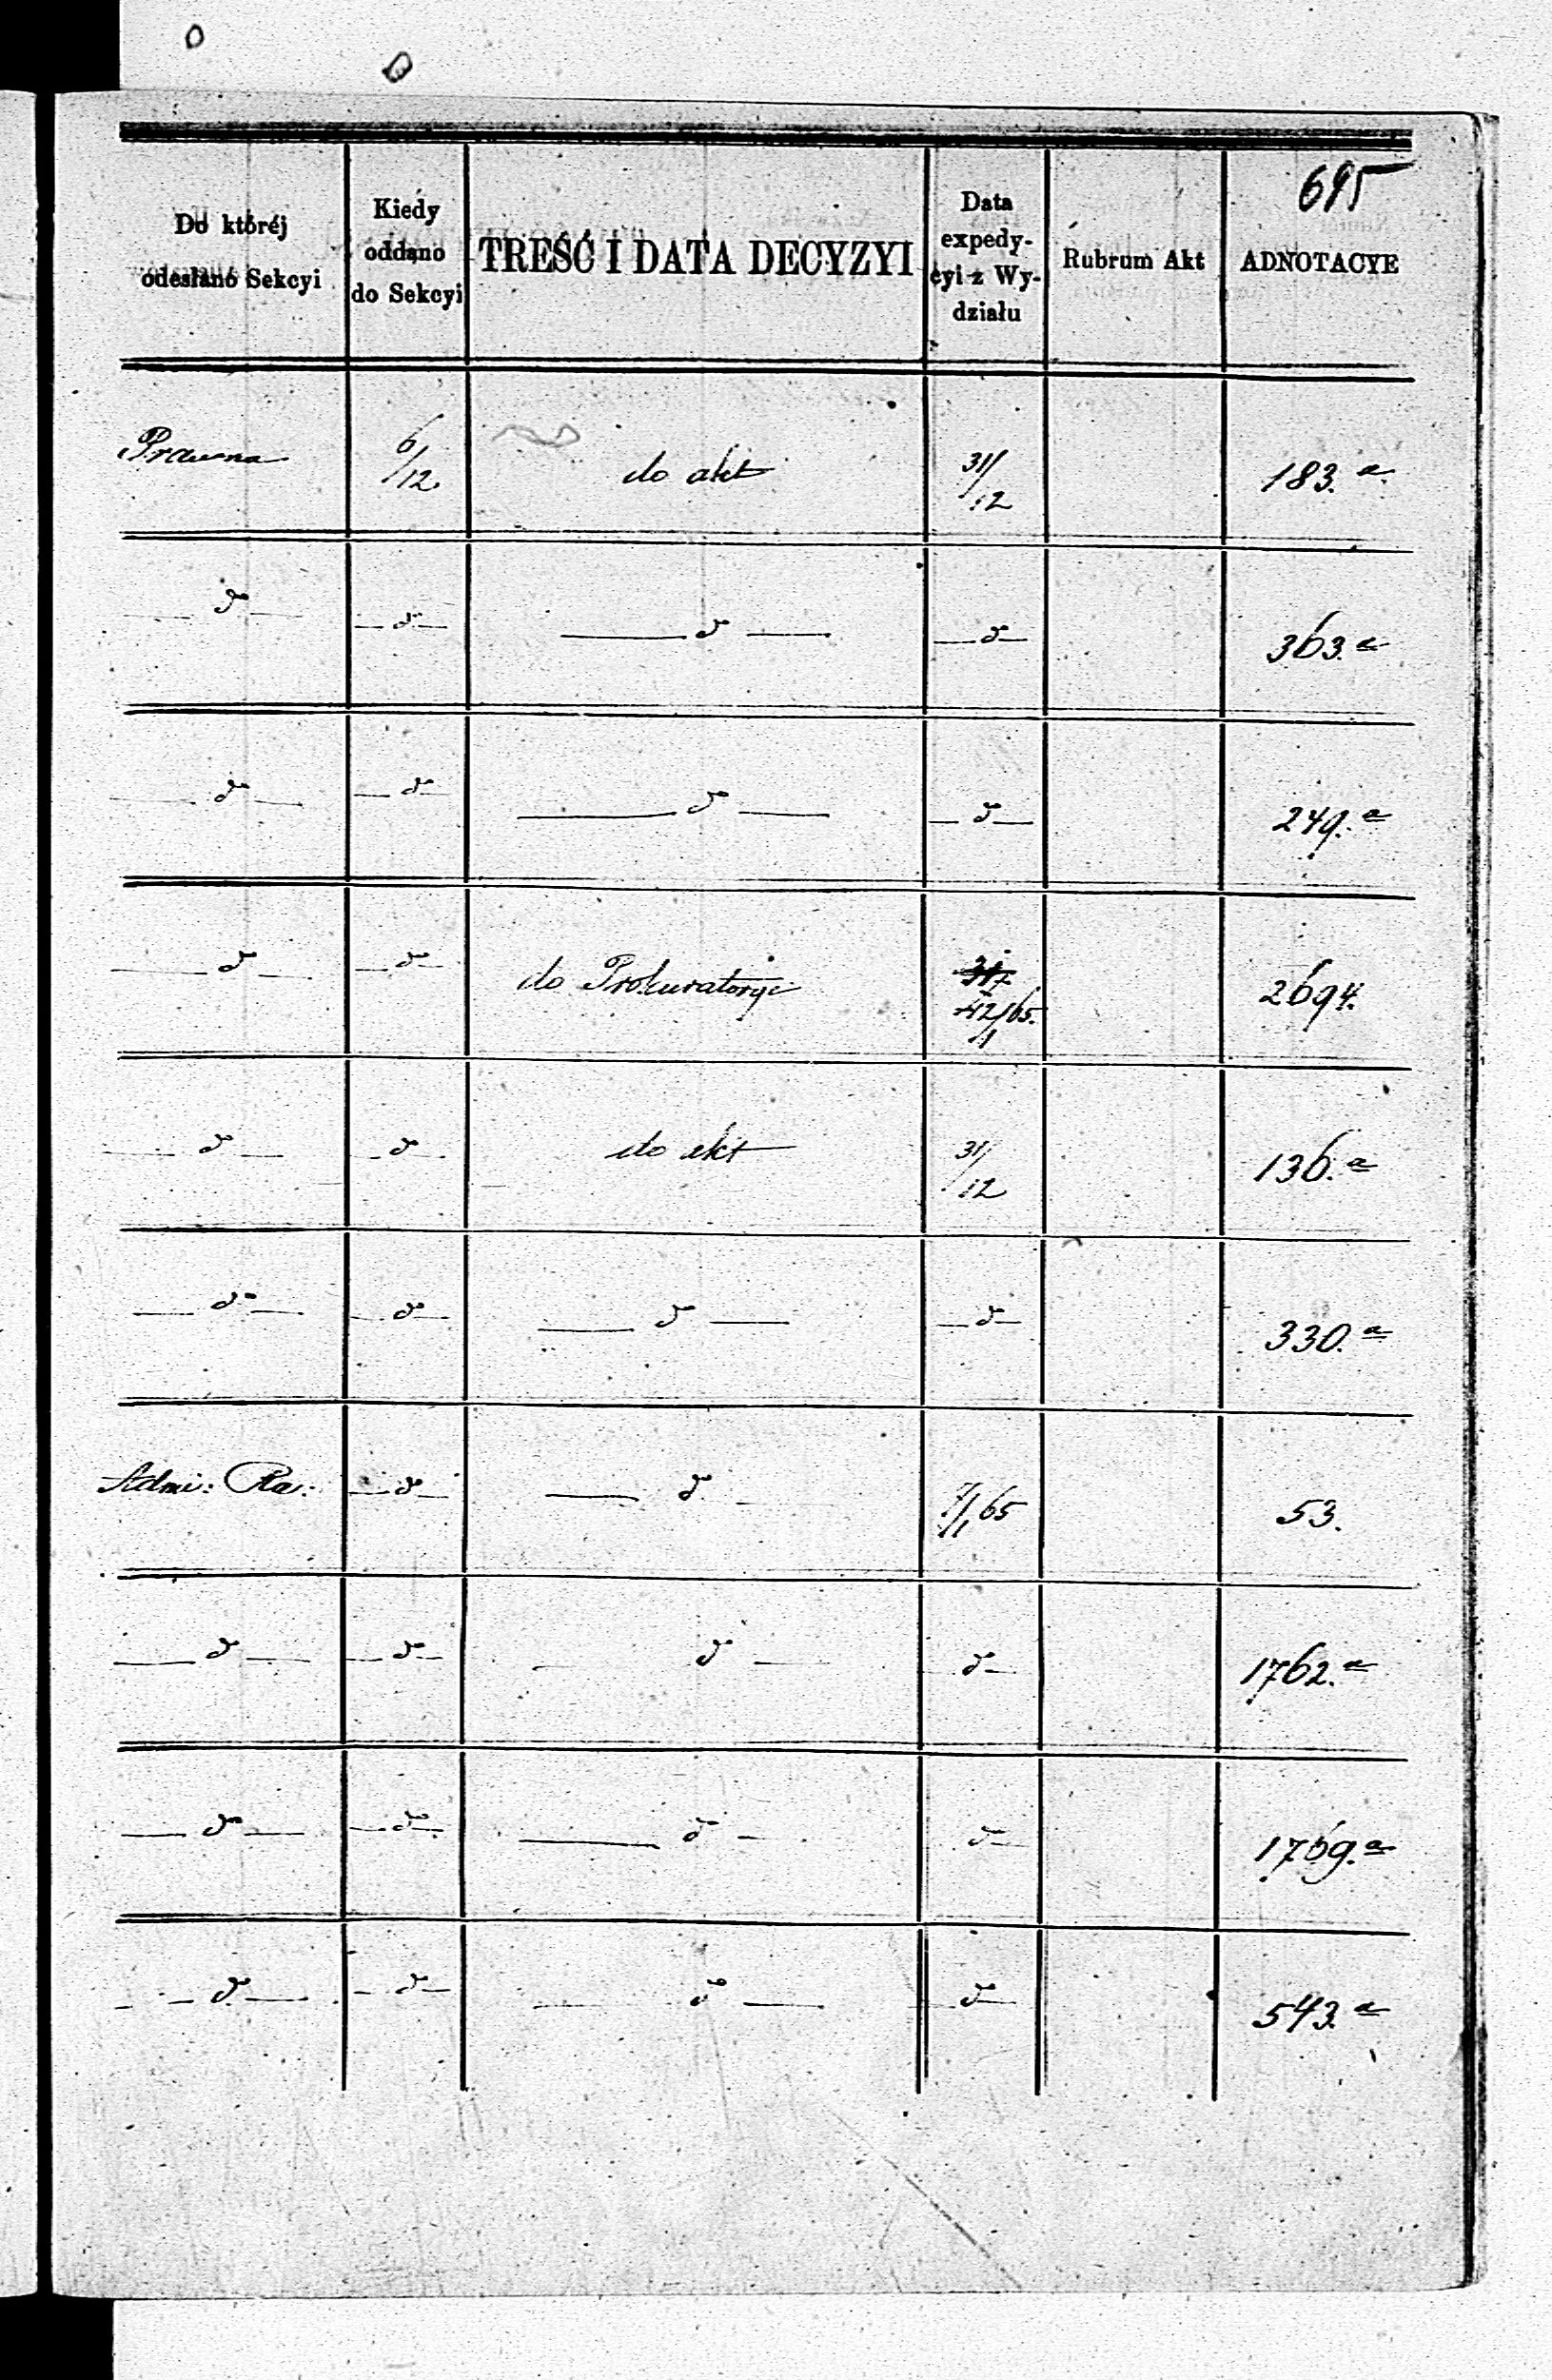 695
Do któréj odesłano Sekcyi | Kiedy oddano do Sekcyi | TREŚĆ I DATA DECYZYI | Data expedycyi z Wydziału | Rubrum Akt | ADNOTACYE
Prawna | 6/12 | do akt | 31/12 | | 183.a
— do — | — do — | — do — | — do — | | 363.a
— do — | — do — | — do — | — do — | | 249.a
— do — | — do — | do Prokuratoryi | /65. | | 2694.
— do — | — do — | do akt | 31/12 | | 136.a
— do — | — do — | — do — | — do — | | 330.a
Admi: Ra: | — do — | — do — | 7/1 65 | | 53.
— do — | — do — | — do — | — do — | | 1762.a
— do — | — do — | — do — | — do — | | 1769.a
— do — | — do — | — do — | — do — | | 543.a